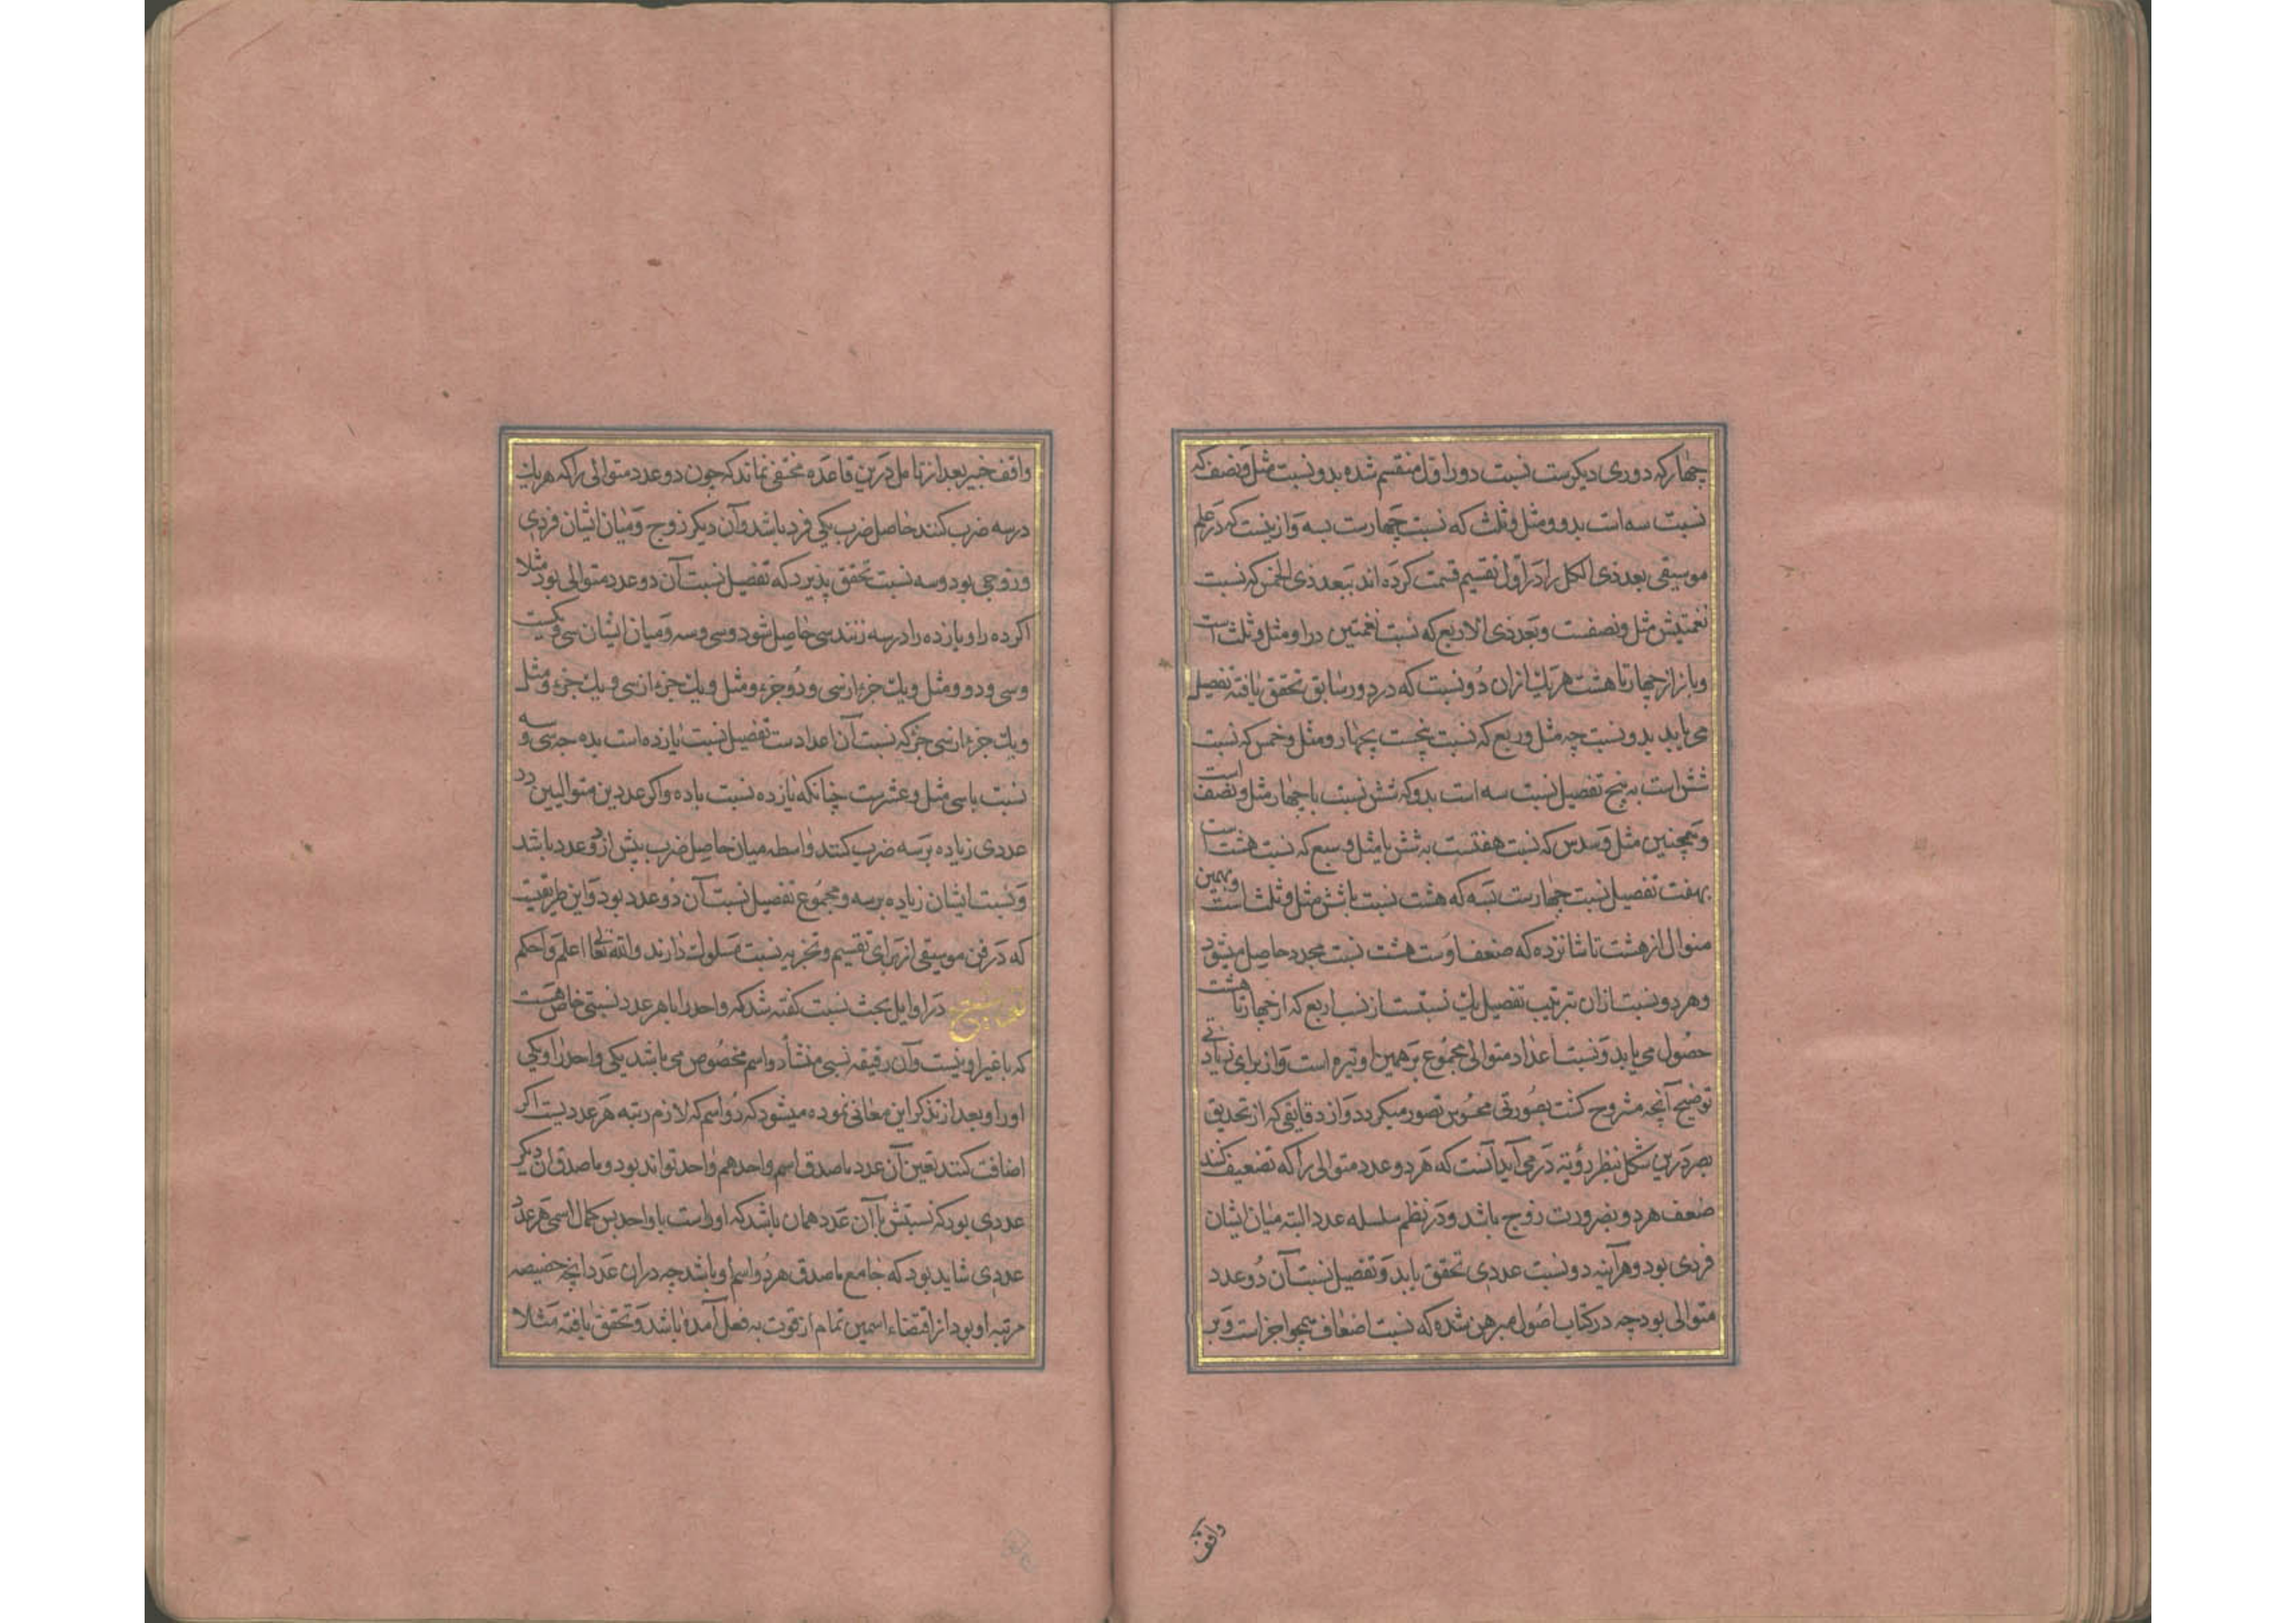 چهار که دوری دیکرست نسبت دور اول منقسم شده بدو نسبت مثل و نصف که
نسبت سه است بدو و مثل و ثلث که نسبت چهارست بسه و ازینست که در علم
موسیقی بعد ذی الکل را در اول تقسیم قسمت کرده اند ببعد ذی الخمس که نسبت
نغمتینش مثل و نصفست و بعد ذی الاربع که نسبت نغمتین در او مثل و ثلث است
و باز از چهار تا هشت هر یك ازان دو نسبت که در دور سابق تحقق یافته تفصیل
می یابد بدو نسبت چه مثل و ربع که نسبت پنجست بچهار و مثل و خمس که نسبت
شش است به پنج تفصیل نسبت سه است بدو که شش نسبت با چهار مثل و نصف است
و همچنین مثل و سدس که نسبت هفتست به شش با مثل و سبع که نسبت هشت است
بهفت تفصیل نسبت چهارست بسه که هشت نسبت با شش مثل و ثلث است و بهمین
منوال از هشت تا شانزده که ضعف اوست هشت نسبت مجدد حاصل میشود
و هر دو نسبت ازان بترتیب تفصیل یك نسبتست از نسب اربع که از چهار تا هشت
حصول می یابد و نسبت اعداد متوالی مجموع بر همین وتیره است و از برای زیادتی
توضیح آنچه مشروح کشت بصورتی محسوس تصور میکردد و از دقایقی که از تحدیق
بصر درین شکل بنظر رؤیة در می آید آنست که هر دو عدد متوالی را که تضعیف کنند
ضعف هر دو بضرورت زوج باشد و در نظم سلسله عدد البته میان ایشان
فردی بود و هرآینه دو نسبت عددی تحقق یابد و تفصیل نسبت آن دو عدد
متوالی بود چه در کتاب اصول مبرهن شده که نسبت اضعاف همچو اجزاست و بر
واقف
واقف خبیر بعد از تامل درین قاعده مختفی نماند که چون دو عدد متوالی را که هر یك
در سه ضرب کنند حاصل ضرب یکی فرد باشد و آن دیکر زوج و میان ایشان فردی
و زوجی بود و سه نسبت تحقق پذیرد که تفصیل نسبت آن دو عدد متوالی بود مثلا
اکر ده را و یازده را در سه زنند سی حاصل شود و سی و سه و میان ایشان سی و یکست
و سی و دو و مثل و یك جزء از سی و دو جزء و مثل و یك جزء از سی و یك جزء و مثل
و یك جزء از سی جزء که نسبت آن اعدادست تفصیل نسبت یازده است بده چه سی و سه
نسبت با سی مثل و عشرست چنانکه یازده نسبت با ده و اکر عددین متوالیین در
عددی زیاده بر سه ضرب کنند واسطه میان حاصل ضرب بیش از دو عدد باشد
و نسبت ایشان زیاده بر سه و مجموع تفصیل نسبت آن دو عدد بود و این طریقیست
که در فن موسیقی از برای تقسیم و تجزیه نسبت مسلوك دارند والله تعالی اعلم و احکم
در اوایل بحث نسبت کفته شد که واحد را با هر عدد نسبتی خاص هست
که با غیر او نیست و آن رقیقه نسبی منشأ دو اسم مخصوص می باشد یکی واحد را و یکی
او را و بعد از تذکر این معانی نموده میشود که دو اسم که لازم رتبه هر عددیست اکر
اضافت کنند بعین آن عدد ما صدق اسم واحد هم واحد تواند بود و ما صدق ان دیکر
عددی بود که نسبتش با آن عدد همان باشد که او راست با واحد پس کمال اسمی هر عدد
عددی شاید بود که جامع ما صدق هر دو اسم او باشد چه دران عدد انچه خصیصه
مرتبه او بود از اقتضاء اسمین تمام از قوت به فعل آمده باشد و تحقق یافته مثلا